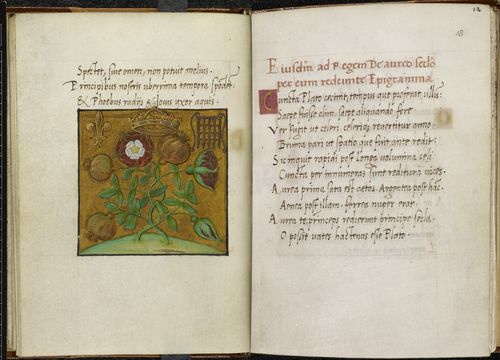 Spectet, siue omen, non potuit melius.
Principibus nostris uberrima tempora spondet
& Phoebus radijs & Iouis uxor aquis.
12
18
Eiusdem ad Regem De aureo seclo
per eum redeunte Epigramma
Cuncta Plato cecinit, tempus que proferat ullum
Saepe fuisse olim, saepe aliquando fore
Ver fugit ut celeri, celeri reuertitur anno
Bruma pari ut spatio quae fuit ante redit
Sic inquit rapidi post longa uolumina coeli
Cuncta per innumeras sunt reditura uices
Aurea prima sata est aetas. Argentea post hac.
Aenea post illam. ferrea nuper erat.
Aurea te princeps redierunt principe secla.
O possit uates hactenus esse Plato.